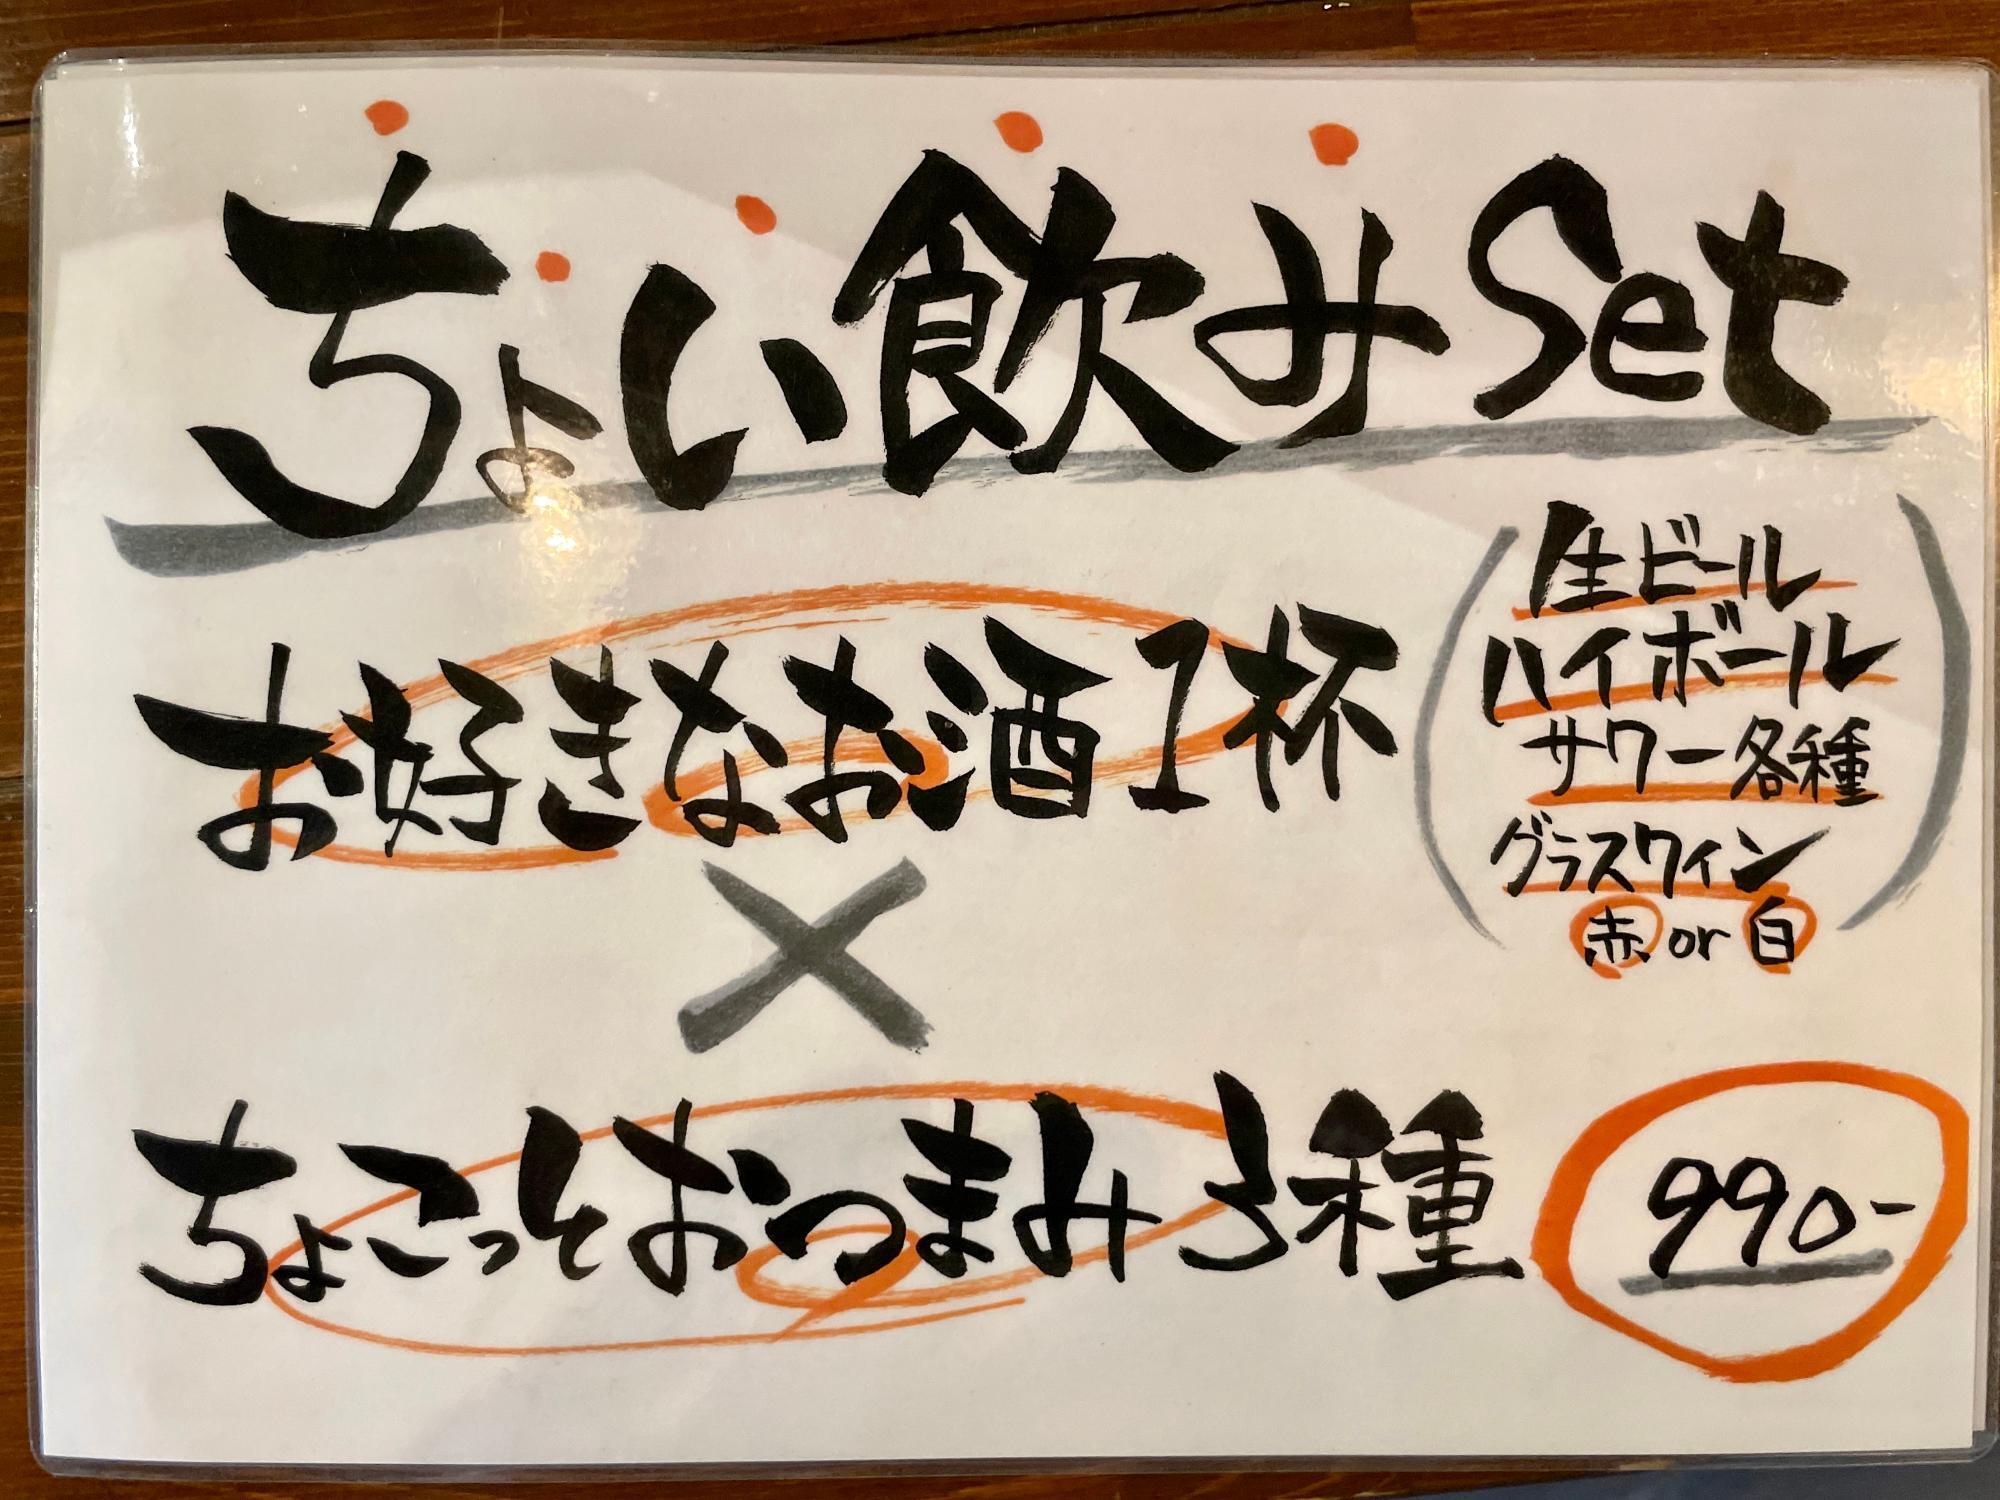 ちょい飲みSet
お好きなお酒1杯
生ビール
ハイボール
サワー各種
グラスワイン
赤or白
×
ちょこっとおつまみ3種
990-